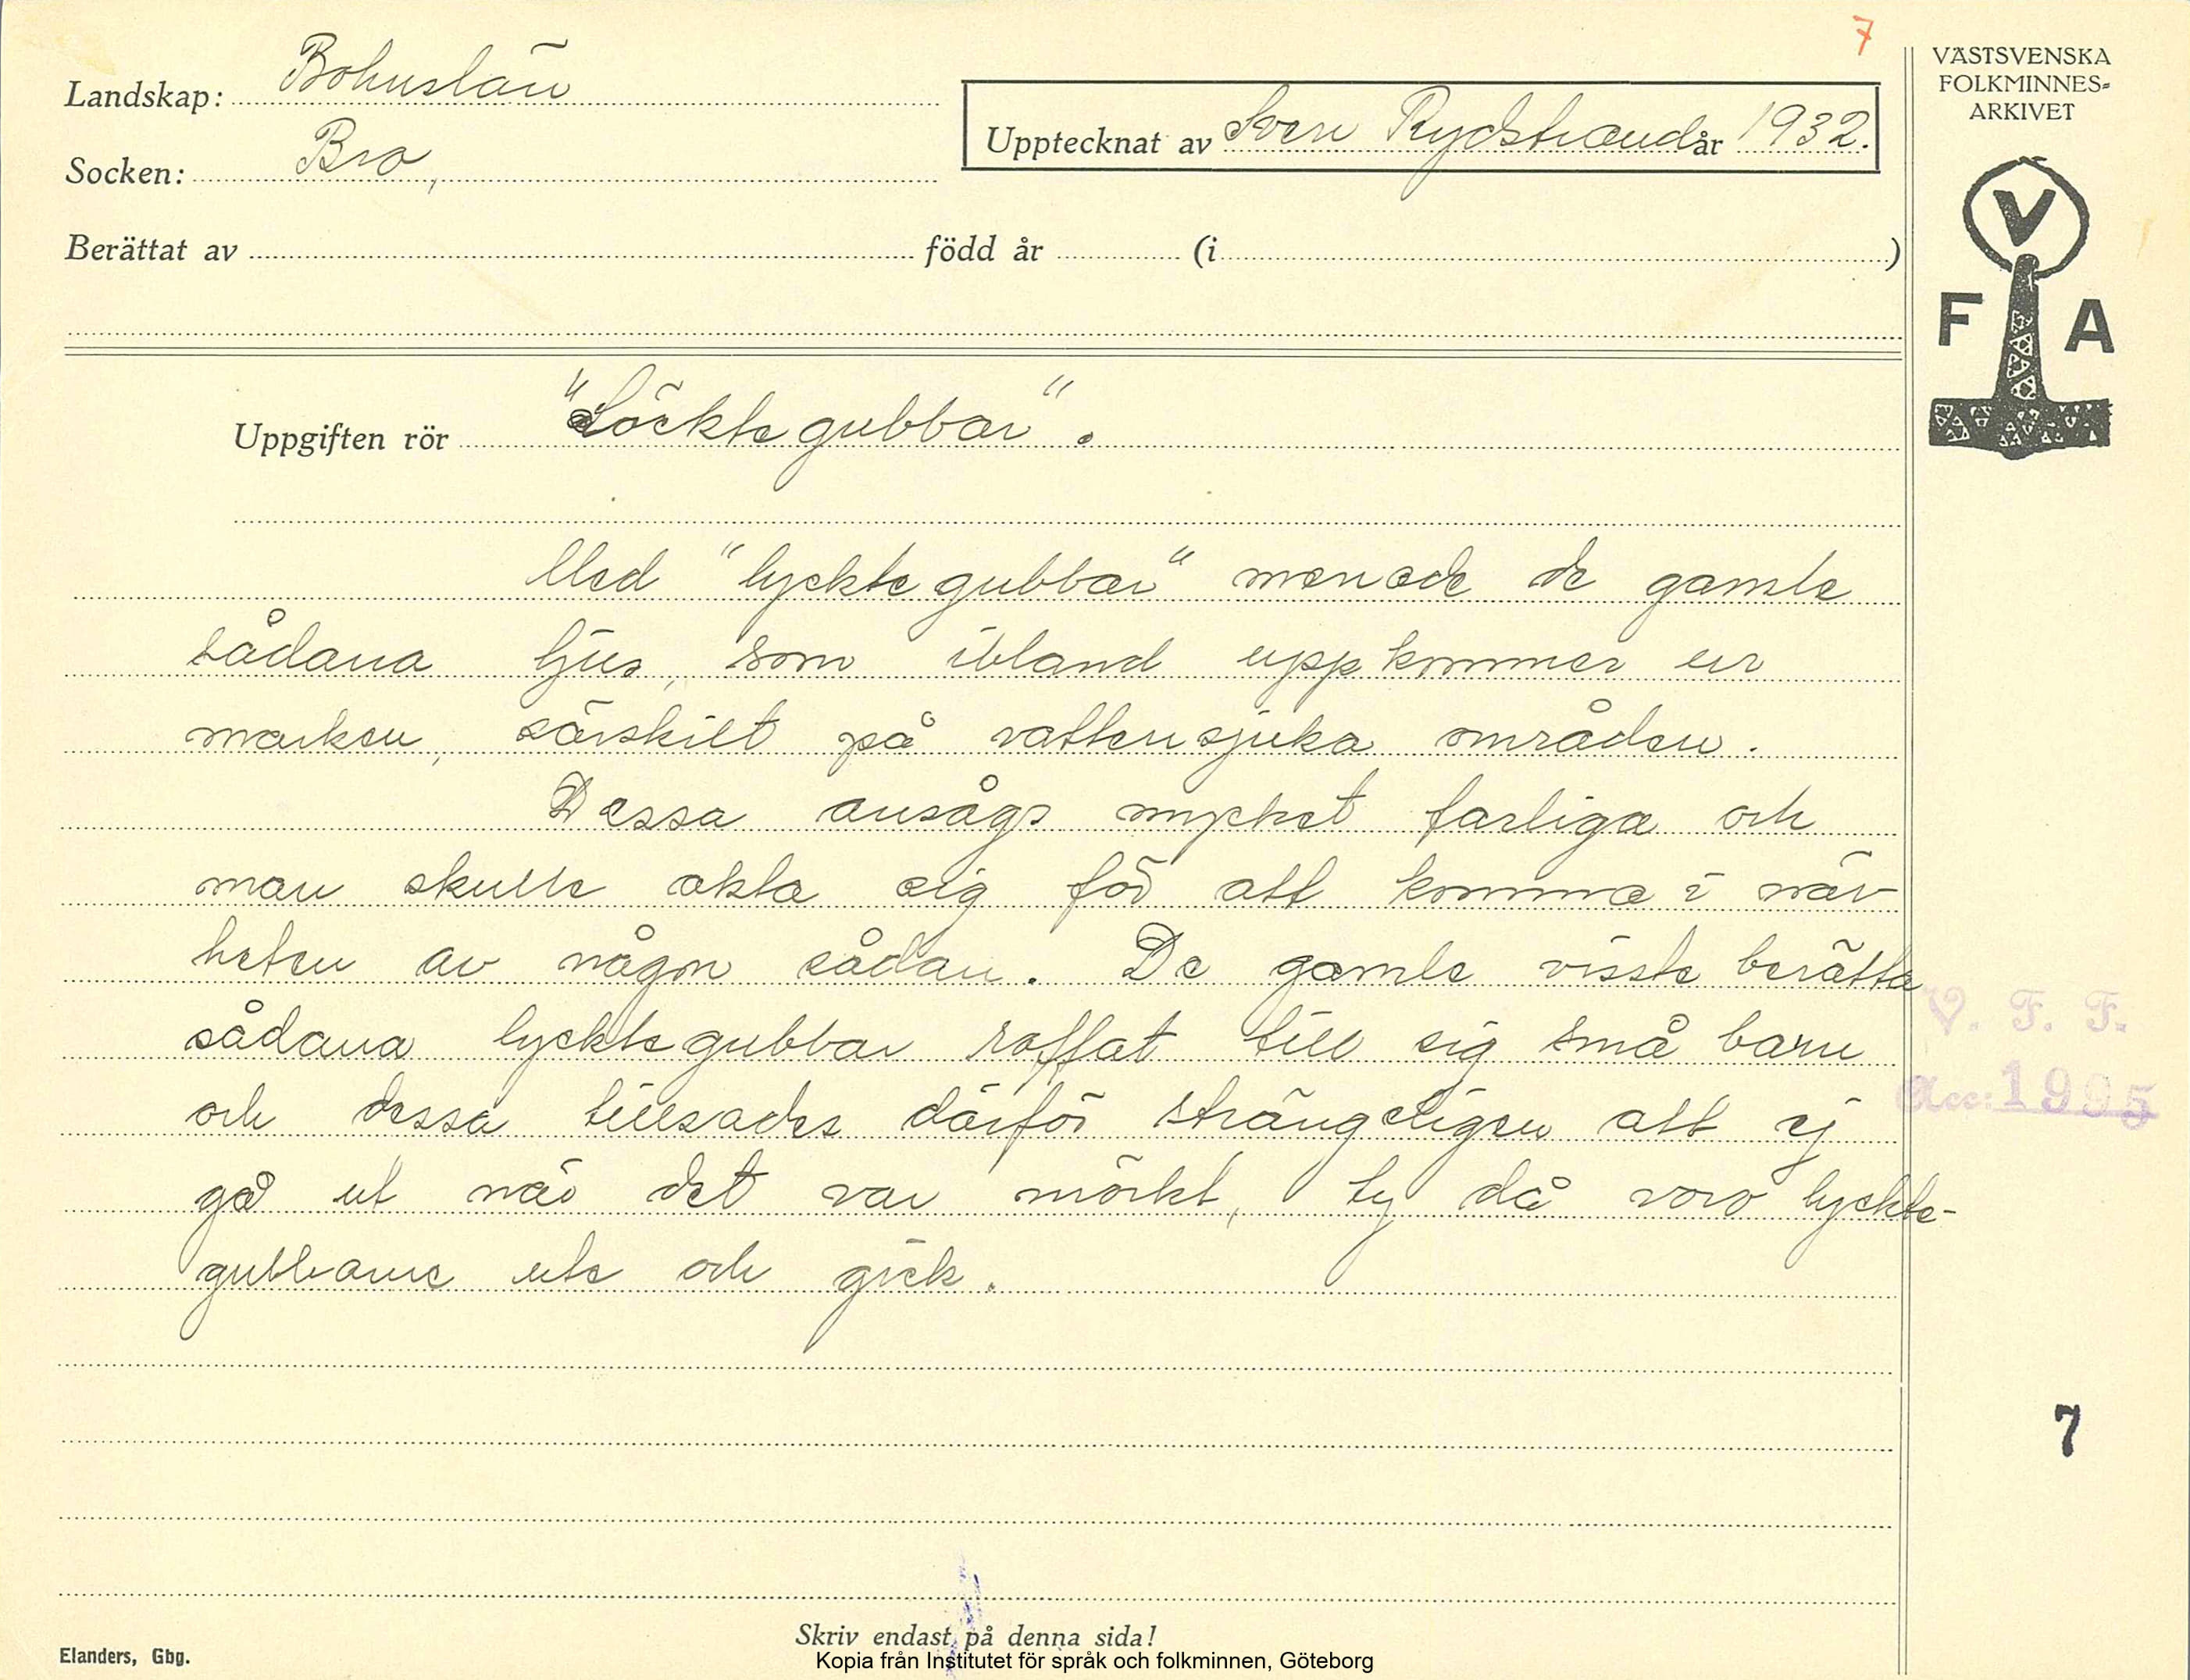 7
VÄSTSVENSKA
FOLKMINNES-
ARKIVET
Landskap: Bohuslän
Upptecknat av Sven Rydstrand år 1932.
Socken: Bro,
Berättat av född år (i )
V
F A
Uppgiften rör "Löcktegubbar".
Med "lycktegubbar" menade de gamle
sådana ljus, som ibland uppkommer ur
marken, särskilt på vattensjuka områden.
Dessa ansågs mycket farliga och
man skulle akta sig för att komma i när-
heten av någon sådan. De gamle visste berätta
sådana lycktegubbar roffat till sig små barn
och dessa tillsades därför strängeligen att ej
gå ut när det var mörkt, ty då voro lyckte-
gubbarne ute och gick.
V. F. F.
Acc: 1995
7
Skriv endast på denna sida!
Elanders, Gbg.
Kopia från Institutet för språk och folkminnen, Göteborg